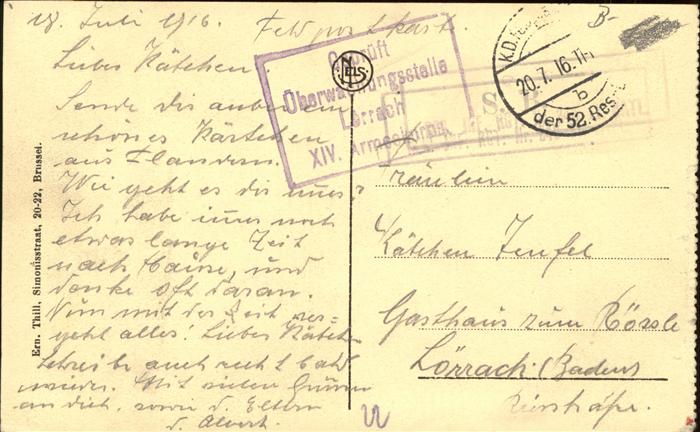 18. Juli 1916. Feldpostkarte
Liebes Kätchen!
Sende dir anbei ein
schönes Kärtchen
aus Flandern.
Wie geht es dir immer?
Ich habe immer noch
etwas lange Zeit
nach und
denke oft daran.
Nun mit der Zeit ver-
geht alles! Liebes Kätchen
schreibe auch recht bald
wieder. Mit vielen Grüssen
an dich, sowie d. Eltern
d. Albert.
Ern. Thill, Simonisstraat, 20-22, Brussel.
NELS
Geprüft
Überwachungsstelle
Lörrach
XIV. Armeekorps
S. B.
K.D.
20.7.16.
b
der 52. Res.
B-
Fräulein
Kätchen Teufel
Gasthaus zum Rössle
Lörrach (Baden)